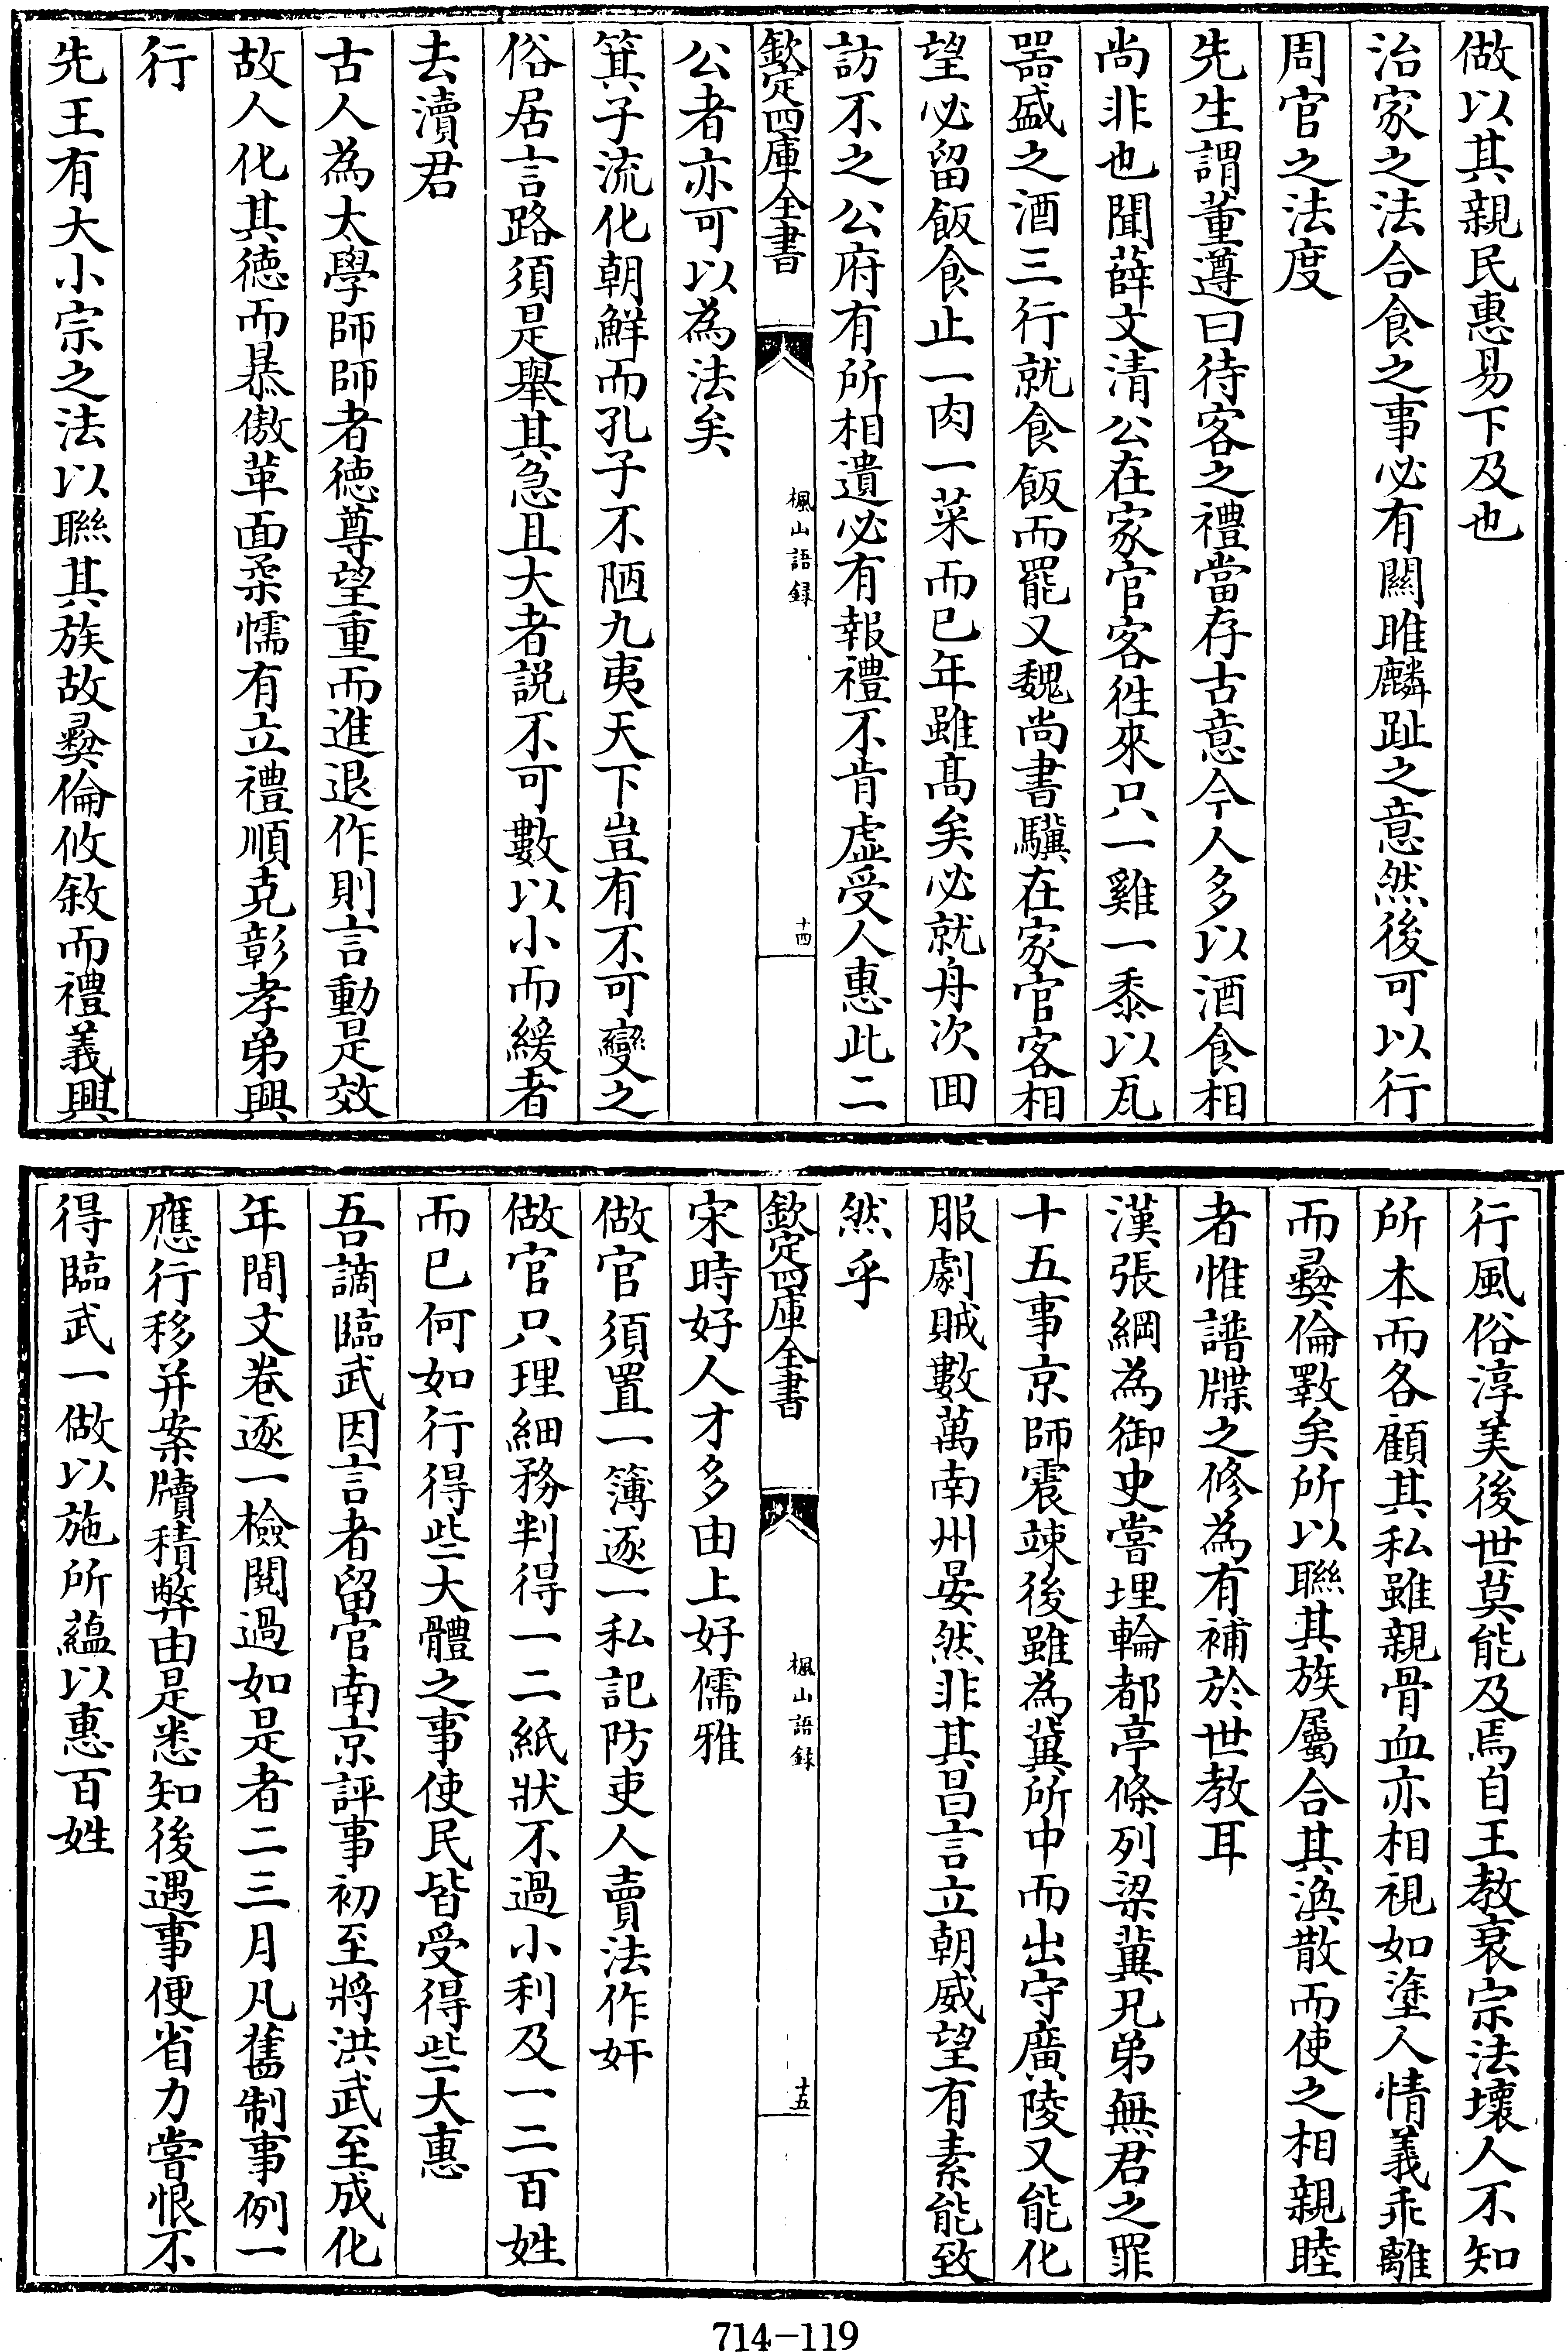 做以其親民惠易下及也
治家之法合食之事必有關雎麟趾之意然後可以行
周官之法度
先生謂董遵曰待客之禮當存古意今人多以酒食相
尚非也聞薛文清公在家官客徃來只一雞一黍以瓦
器盛之酒三行就食飯而罷又魏尚書驥在家官客相
望必留飯食止一肉一菜而已年雖髙矣必就舟次囬
訪不之公府有所相遺必有報禮不肯虛受人惠此二
欽定四庫全書
楓山語録
十四
公者亦可以為法矣
箕子流化朝鮮而孔子不陋九夷天下豈有不可變之
俗居言路須是舉其急且大者説不可數以小而緩者
去瀆君
古人為太學師師者徳尊望重而進退作則言動是效
故人化其徳而暴傲革面柔懦有立禮順克彰孝弟興
行
先王有大小宗之法以聯其族故彛倫攸敘而禮義興
行風俗淳美後世莫能及焉自王教衰宗法壞人不知
所本而各顧其私雖親骨血亦相視如塗人情義乖離
而彛倫斁矣所以聯其族屬合其渙散而使之相親睦
者惟譜牒之修為有補於世教耳
漢張綱為御史嘗埋輪都亭條列梁冀兄弟無君之罪
十五事京師震竦後雖為冀所中而出守廣陵又能化
服劇賊數萬南州晏然非其昌言立朝威望有素能致
然乎
欽定四庫全書
楓山語録
十五
宋時好人才多由上好儒雅
做官須置一簿逐一私記防吏人賣法作奸
做官只理細務判得一二紙狀不過小利及一二百姓
而已何如行得些大體之事使民皆受得些大惠
吾謫臨武因言者留官南京評事初至將洪武至成化
年間文卷逐一檢閲過如是者二三月凡舊制事例一
應行移并案牘積弊由是悉知後遇事便省力嘗恨不
得臨武一做以施所蘊以惠百姓
714-119